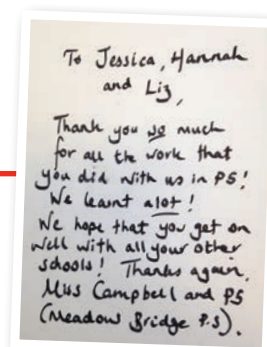 To Jessica, Hannah
and Liz,
Thank you so much
for all the work that
you did with us in P5!
We learnt alot!
We hope that you get on
well with all your other
schools! Thanks again,
Miss Campbell and P5
(Meadow Bridge P.S).